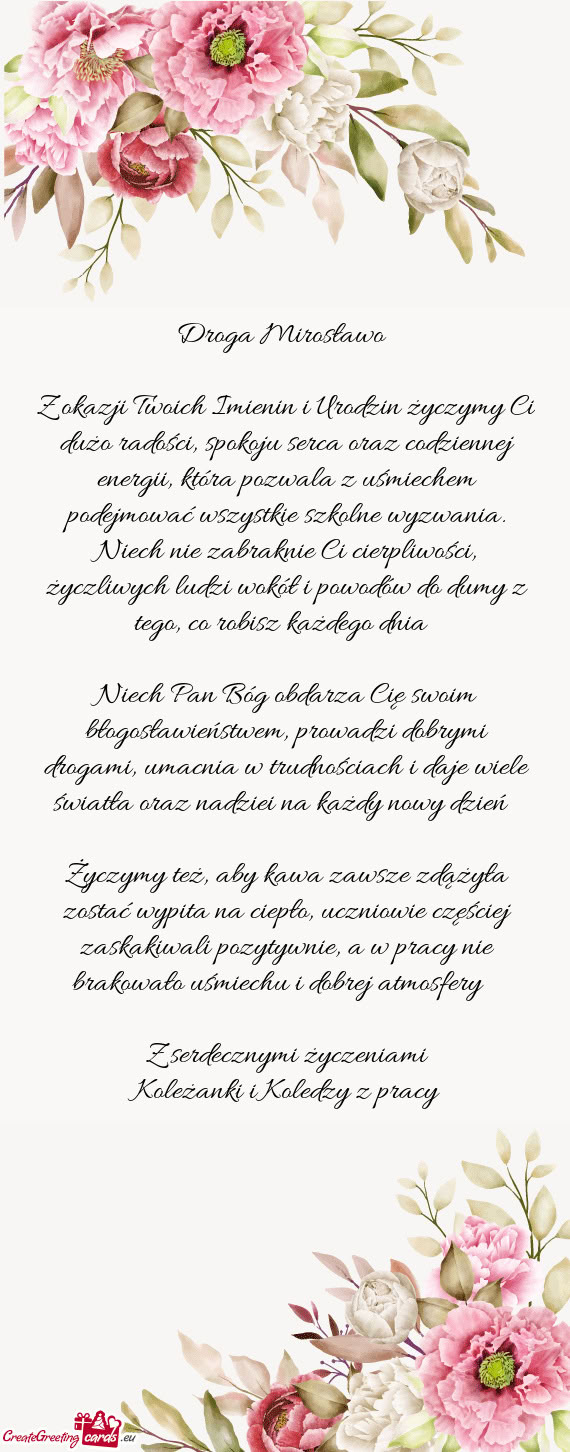 Droga Mirosławo
Z okazji Twoich Imienin i Urodzin życzymy Ci
dużo radości, spokoju serca oraz codziennej
energii, która pozwala z uśmiechem
podejmować wszystkie szkolne wyzwania.
Niech nie zabraknie Ci cierpliwości,
życzliwych ludzi wokół i powodów do dumy z
tego, co robisz każdego dnia
Niech Pan Bóg obdarza Cię swoim
błogosławieństwem, prowadzi dobrymi
drogami, umacnia w trudnościach i daje wiele
światła oraz nadziei na każdy nowy dzień
Życzymy też, aby kawa zawsze zdążyła
zostać wypita na ciepło, uczniowie częściej
zaskakiwali pozytywnie, a w pracy nie
brakowało uśmiechu i dobrej atmosfery
Z serdecznymi życzeniami
Koleżanki i Koledzy z pracy
CreateGreeting cards .eu